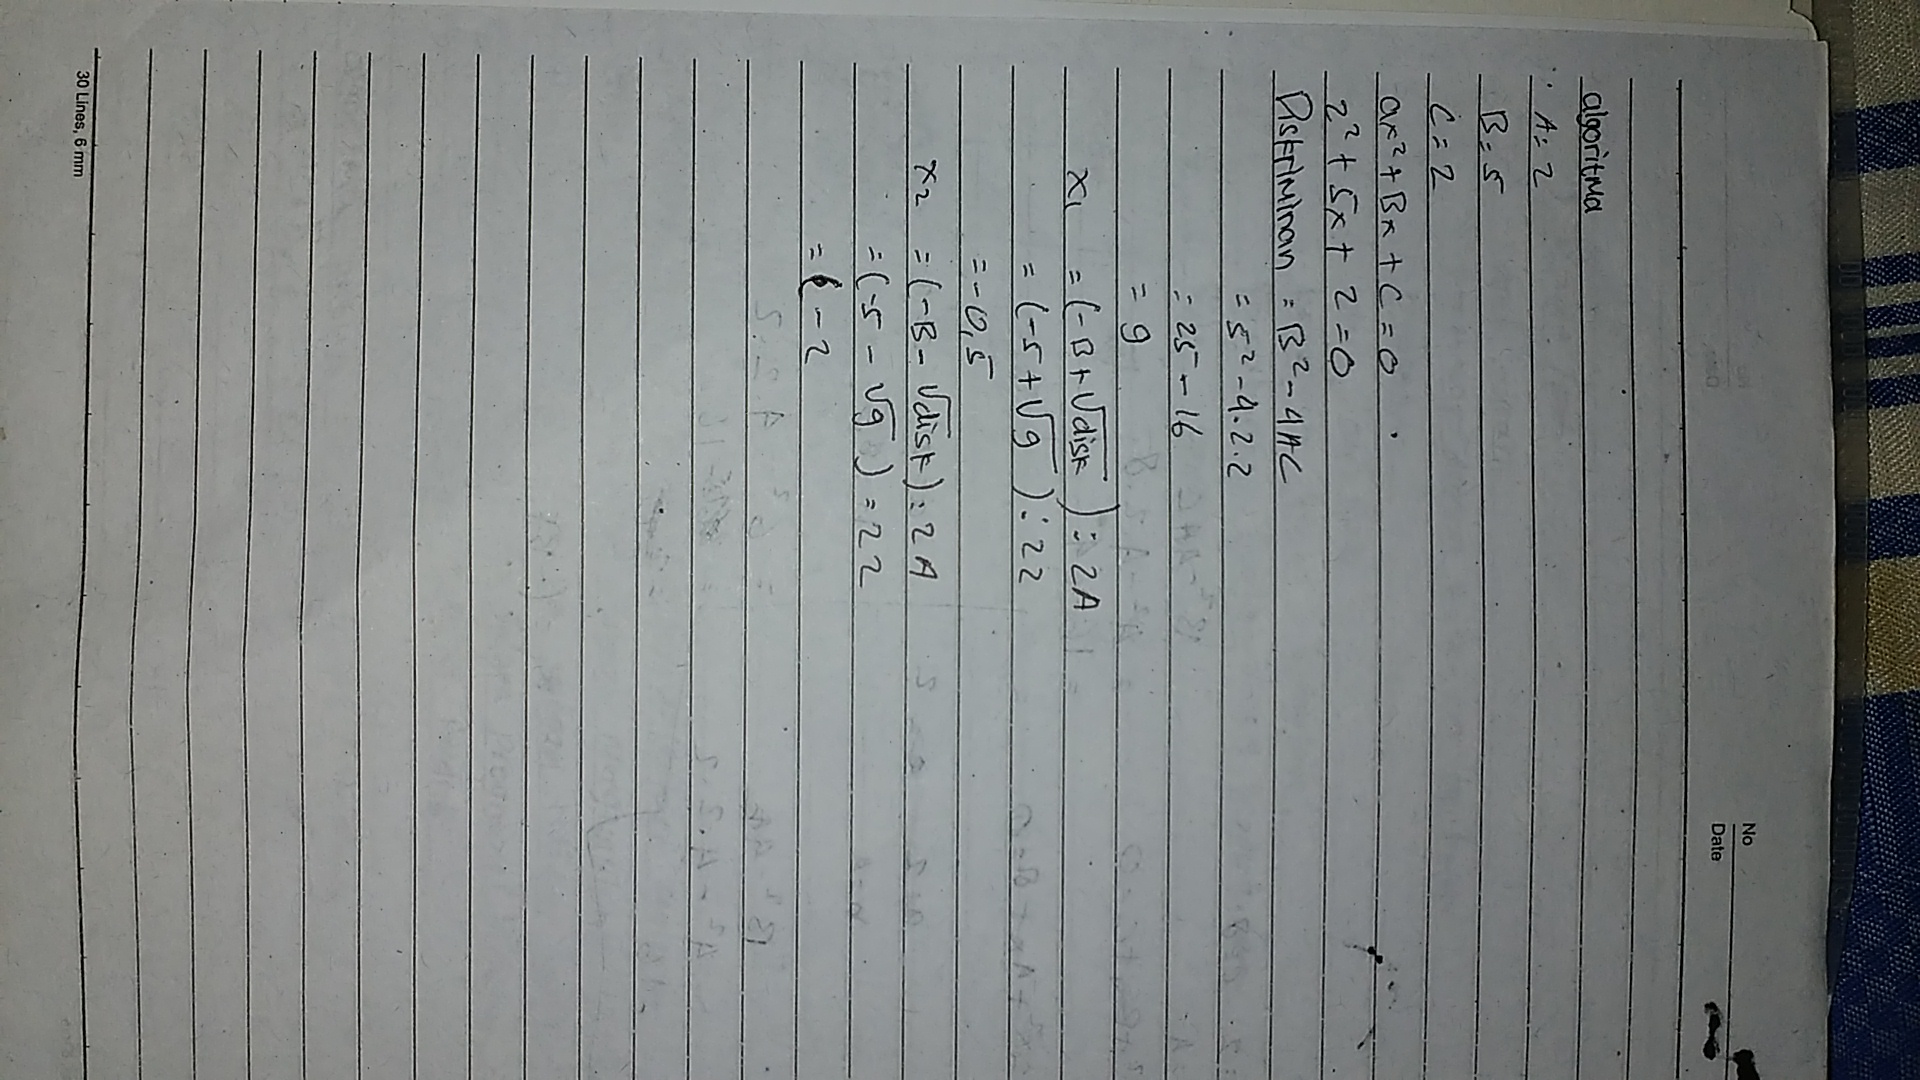 No
Date
algoritma
A = 2
B = 5
C = 2
ax² + Bx + C = 0
2² + 5x + 2 = 0
Diskriminan = B² - 4AC
= 5² - 4.2.2
= 25 - 16
= 9
x₁ = (-B + √disk) : 2A
= (-5 + √9) : 22
= -0,5
x₂ = (-B - √disk) : 2A
= (-5 - √9) = 22
= -2
30 Lines, 6 mm